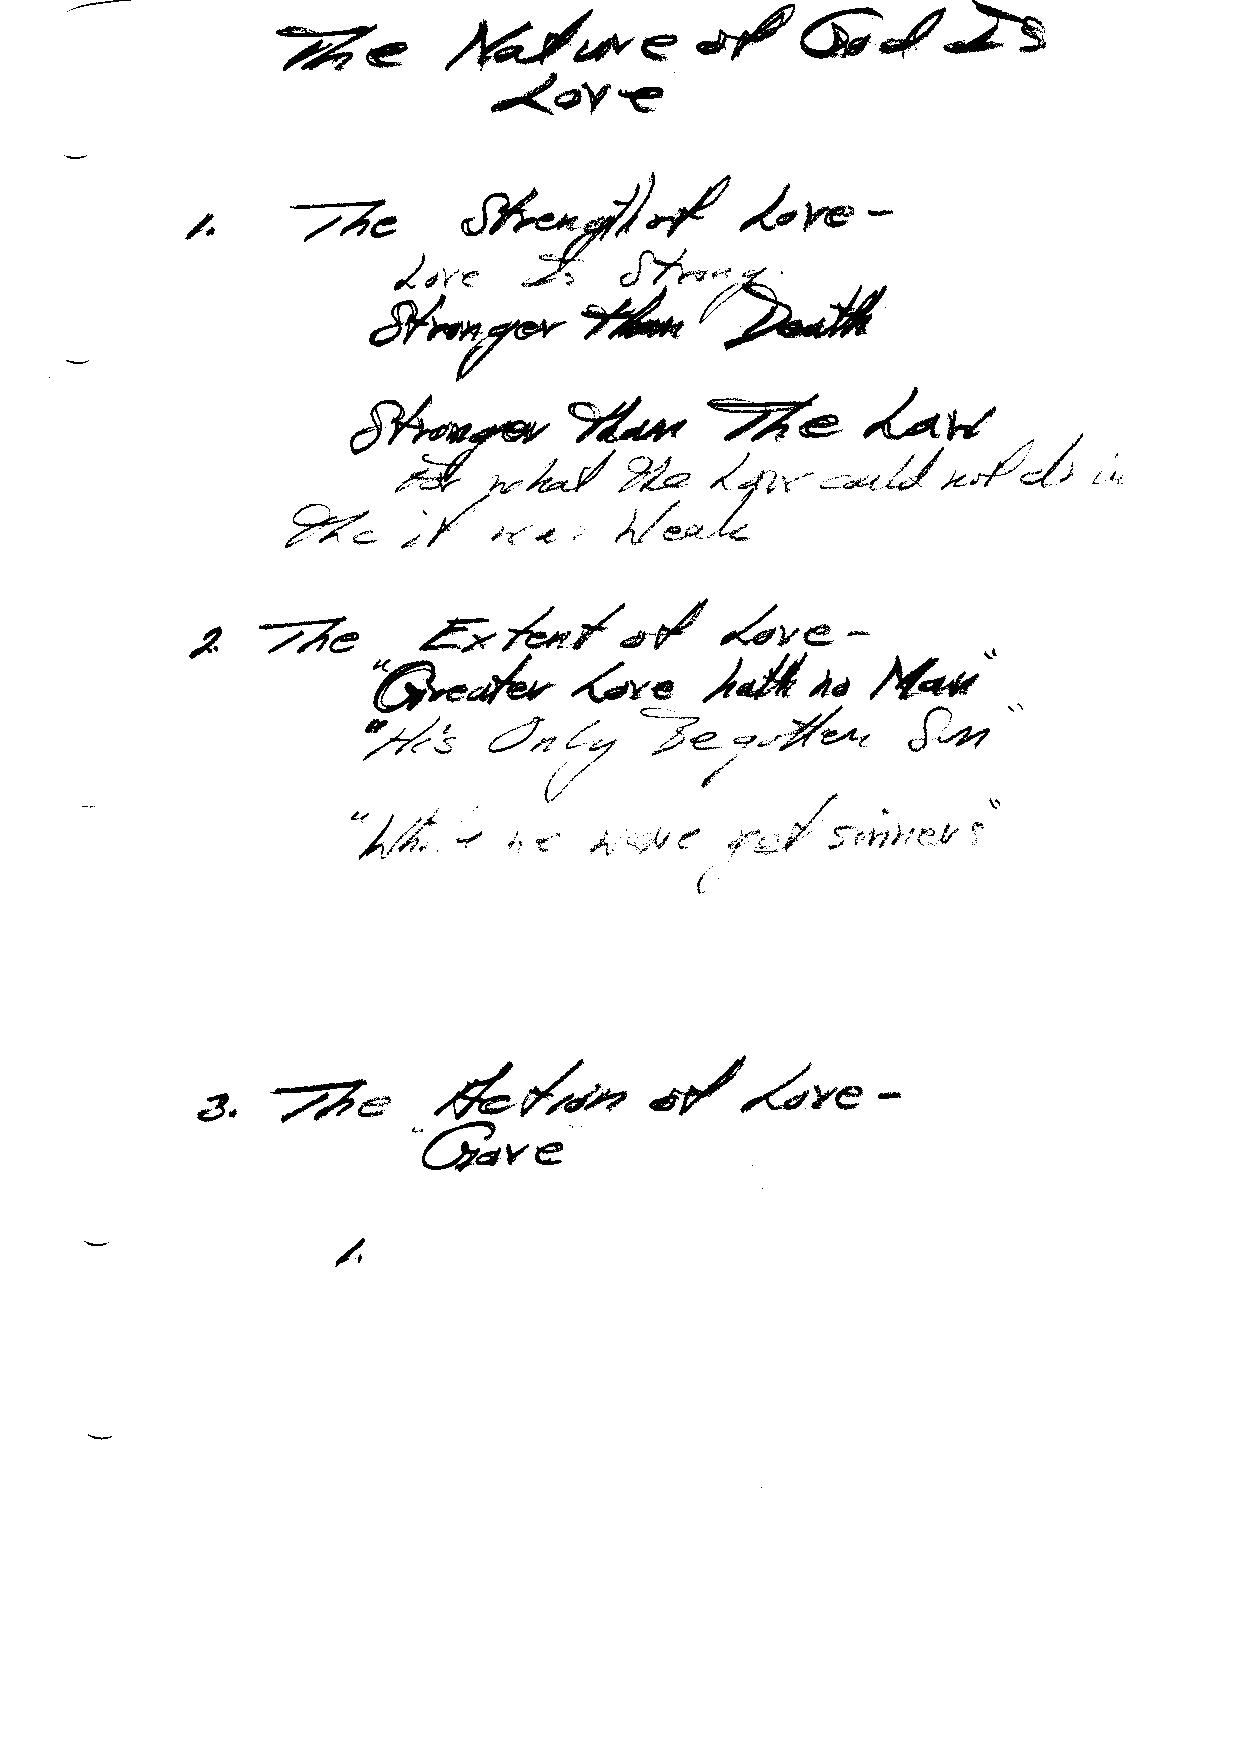 The Nature of God Is
Love
1. The Strength of Love-
Love Is Strong
Stronger than Death
Stronger than The Law
For what the Law could not do in
the it was Weak
2. The Extent of Love-
"Greater Love hath no Man"
"His Only Begotten Son"
"While we were yet sinners"
3. The Action of Love-
"Gave"
1.